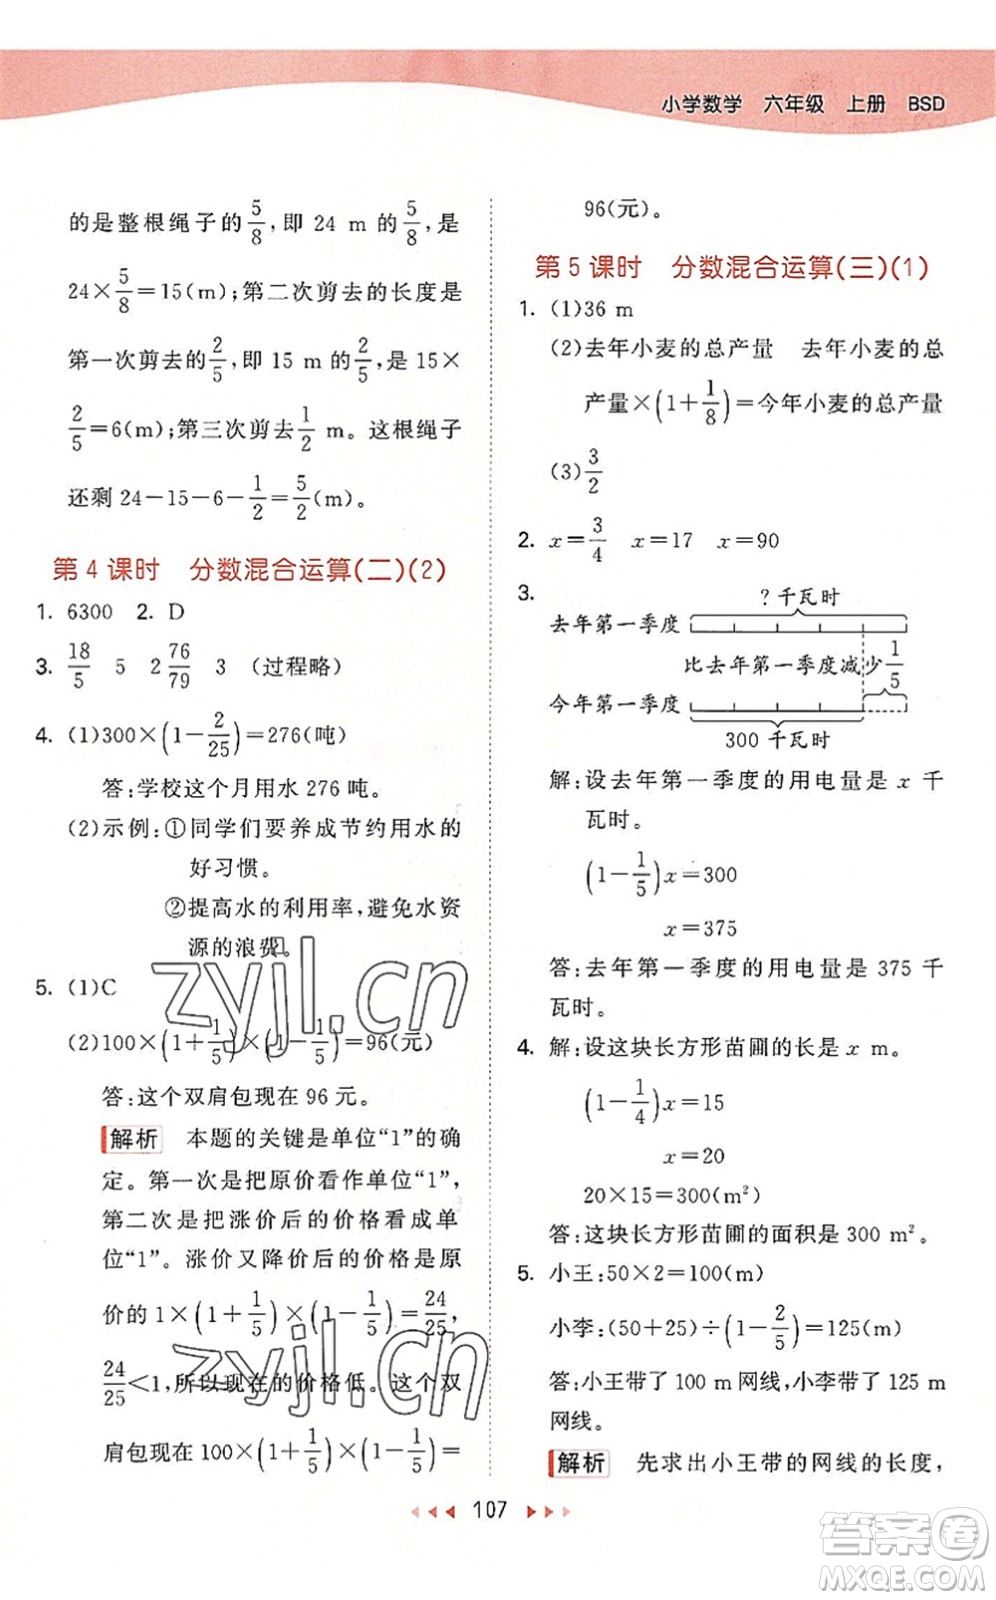 小学数学 六年级 上册 BSD
的是整根绳子的5/8,即 24 m 的5/8,是
24×5/8=15(m);第二次剪去的长度是
第一次剪去的2/5,即 15 m 的2/5,是 15×
2/5=6(m);第三次剪去1/2 m。这根绳子
还剩 24-15-6-1/2=5/2(m)。
第 4 课时 分数混合运算(二)(2)
1. 6300 2. D
3. 18/5 5 2 76/79 3 (过程略)
4. (1)300×(1-2/25)=276(吨)
答:学校这个月用水 276 吨。
(2)示例:①同学们要养成节约用水的
好习惯。
②提高水的利用率,避免水资
源的浪费。
5. (1)C
(2)100×(1+1/5)×(1-1/5)=96(元)
答:这个双肩包现在 96 元。
解析 本题的关键是单位“1”的确
定。第一次是把原价看作单位“1”,
第二次是把涨价后的价格看成单
位“1”。涨价又降价后的价格是原
价的 1×(1+1/5)×(1-1/5)=24/25,
24/25<1,所以现在的价格低。这个双
肩包现在 100×(1+1/5)×(1-1/5)=
96(元)。
第 5 课时 分数混合运算(三)(1)
1. (1)36 m
(2)去年小麦的总产量 去年小麦的总
产量×(1+1/8)=今年小麦的总产量
(3)3/2
2. x=3/4 x=17 x=90
3.
?千瓦时
去年第一季度
比去年第一季度减少1/5
今年第一季度
300 千瓦时
解:设去年第一季度的用电量是 x 千
瓦时。
(1-1/5)x=300
x=375
答:去年第一季度的用电量是 375 千
瓦时。
4. 解:设这块长方形苗圃的长是 x m。
(1-1/4)x=15
x=20
20×15=300(m²)
答:这块长方形苗圃的面积是 300 m²。
5. 小王:50×2=100(m)
小李:(50+25)÷(1-2/5)=125(m)
答:小王带了 100 m 网线,小李带了 125 m
网线。
解析 先求出小王带的网线的长度,
107
zyjl.cn
zyjl.cn
答案圈
MXQE.COM